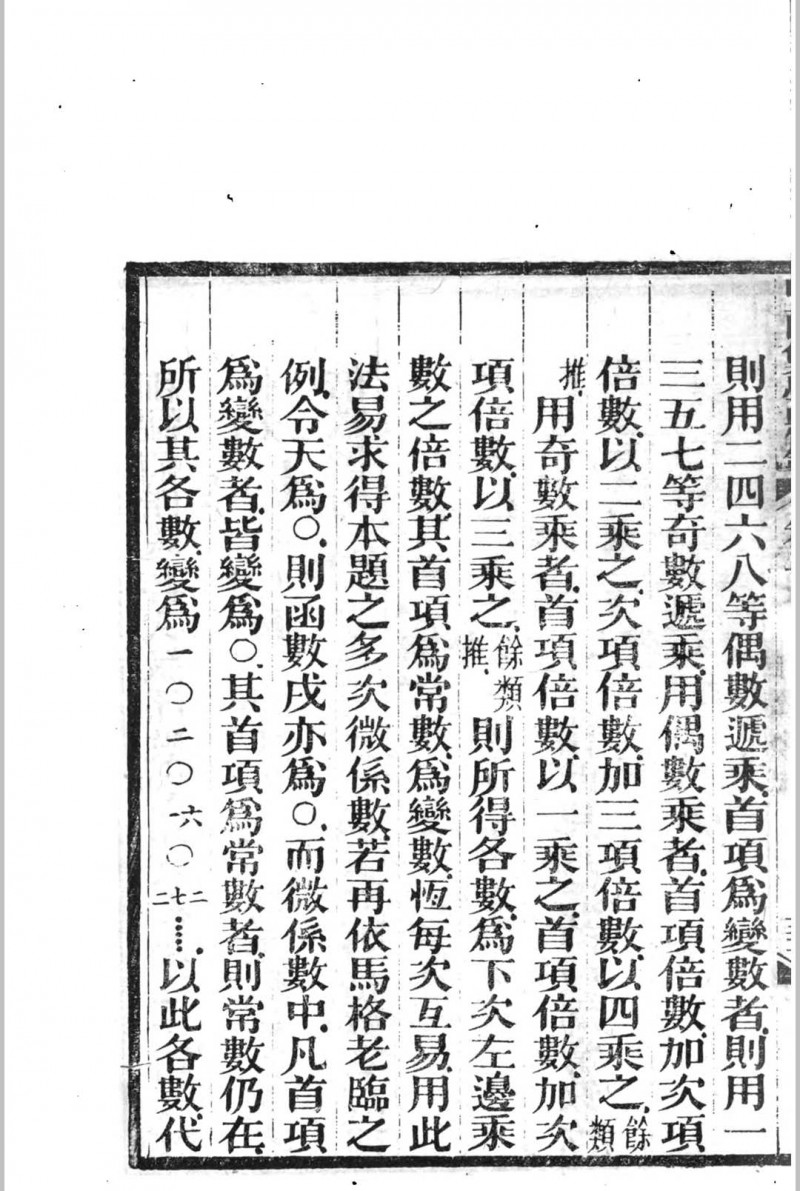 則用二四六八等偶數遞乘、首項爲變數者、則用一
三五七等奇數遞乘、用偶數乘者、首項倍數、加次項
倍數、以二乘之、次項倍數、加三項倍數、以四乘之、餘類
推、用奇數乘者、首項倍數、以一乘之、首項倍數、加次
項倍數、以三乘之、餘類推、則所得各數、爲下次左邊乘
數之倍數、其首項爲常數、爲變數、恆每次互易、用此
法易求得本題之多次微係數、若再依馬格老臨之
例、令天爲○、則函數戌亦爲○、而微係數中、凡首項
爲變數者、皆變爲○、其首項爲常數者、則常數仍在、
所以其各數、變爲一○二○一六○二七二……、以此各數、代